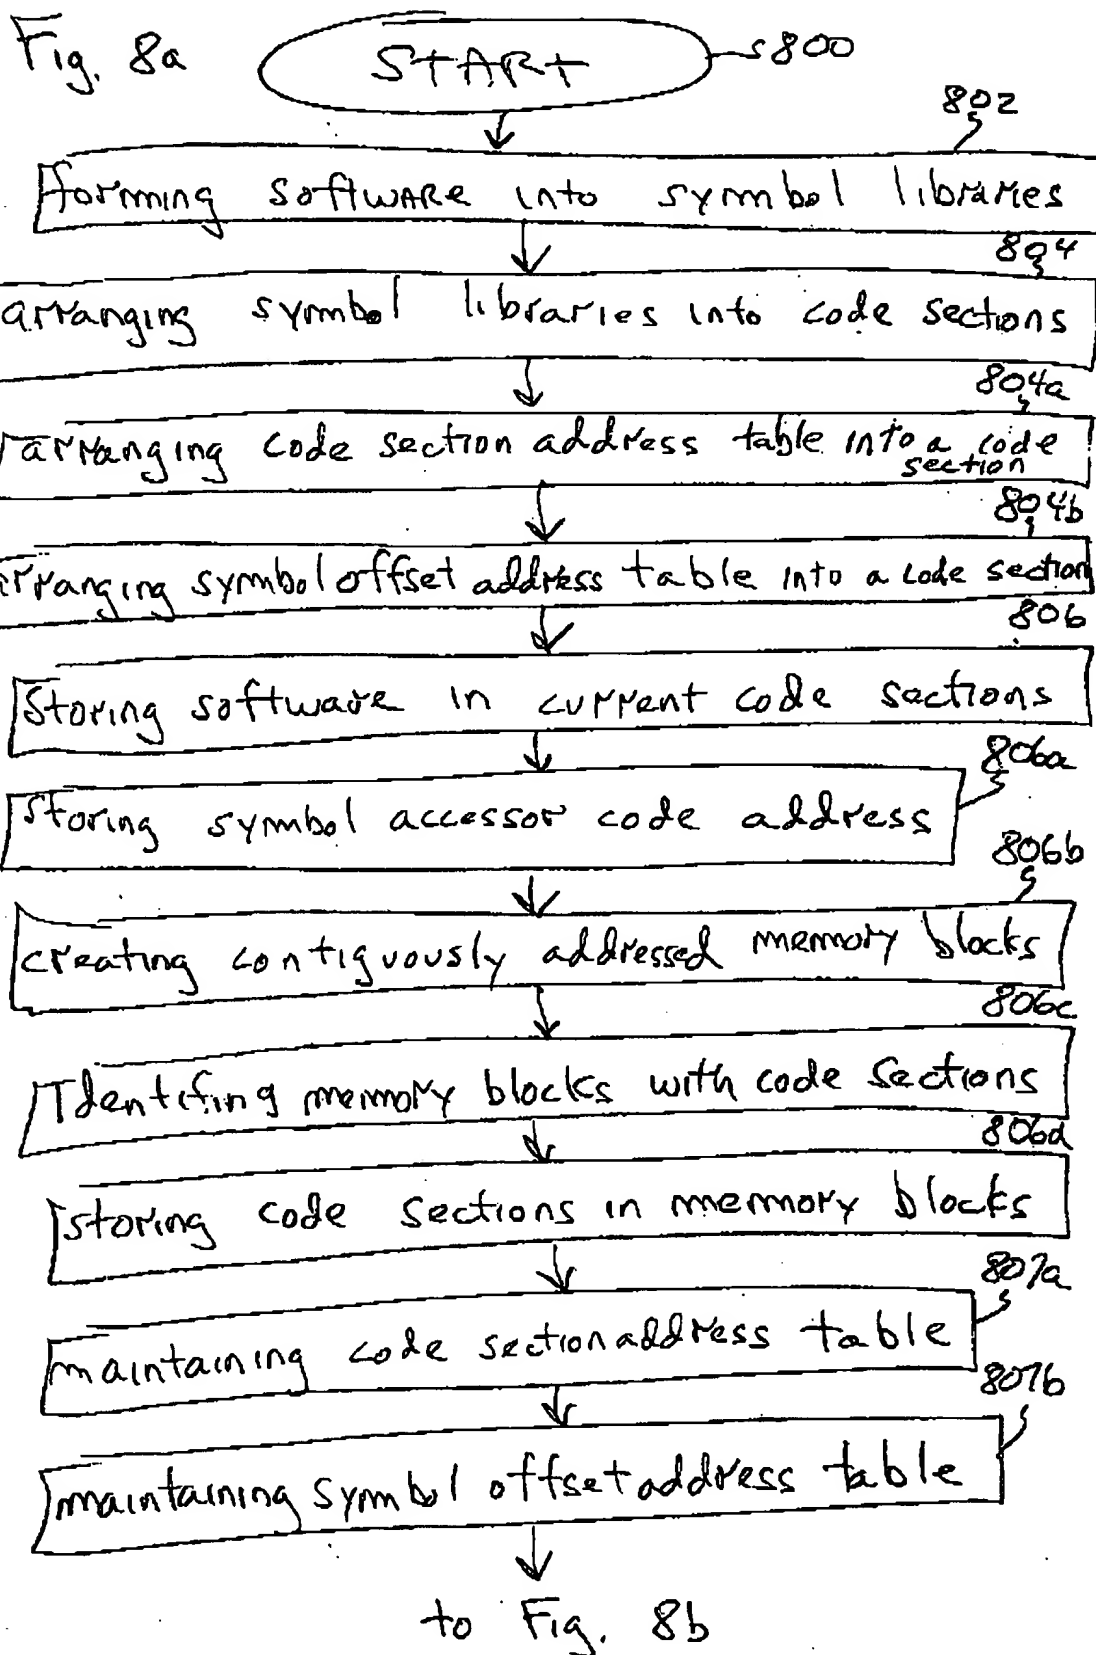 Fig. 8a
START
800
802
forming software into symbol libraries
804
arranging symbol libraries into code sections
804a
arranging code section address table into a code
section
804b
arranging symbol offset address table into a code section
806
Storing software in current code sections
806a
storing symbol accessor code address
806b
creating contiguously addressed memory blocks
806c
Identifing memory blocks with code sections
806d
storing code sections in memory blocks
807a
maintaining code section address table
807b
maintaining symbol offset address table
to Fig. 8b